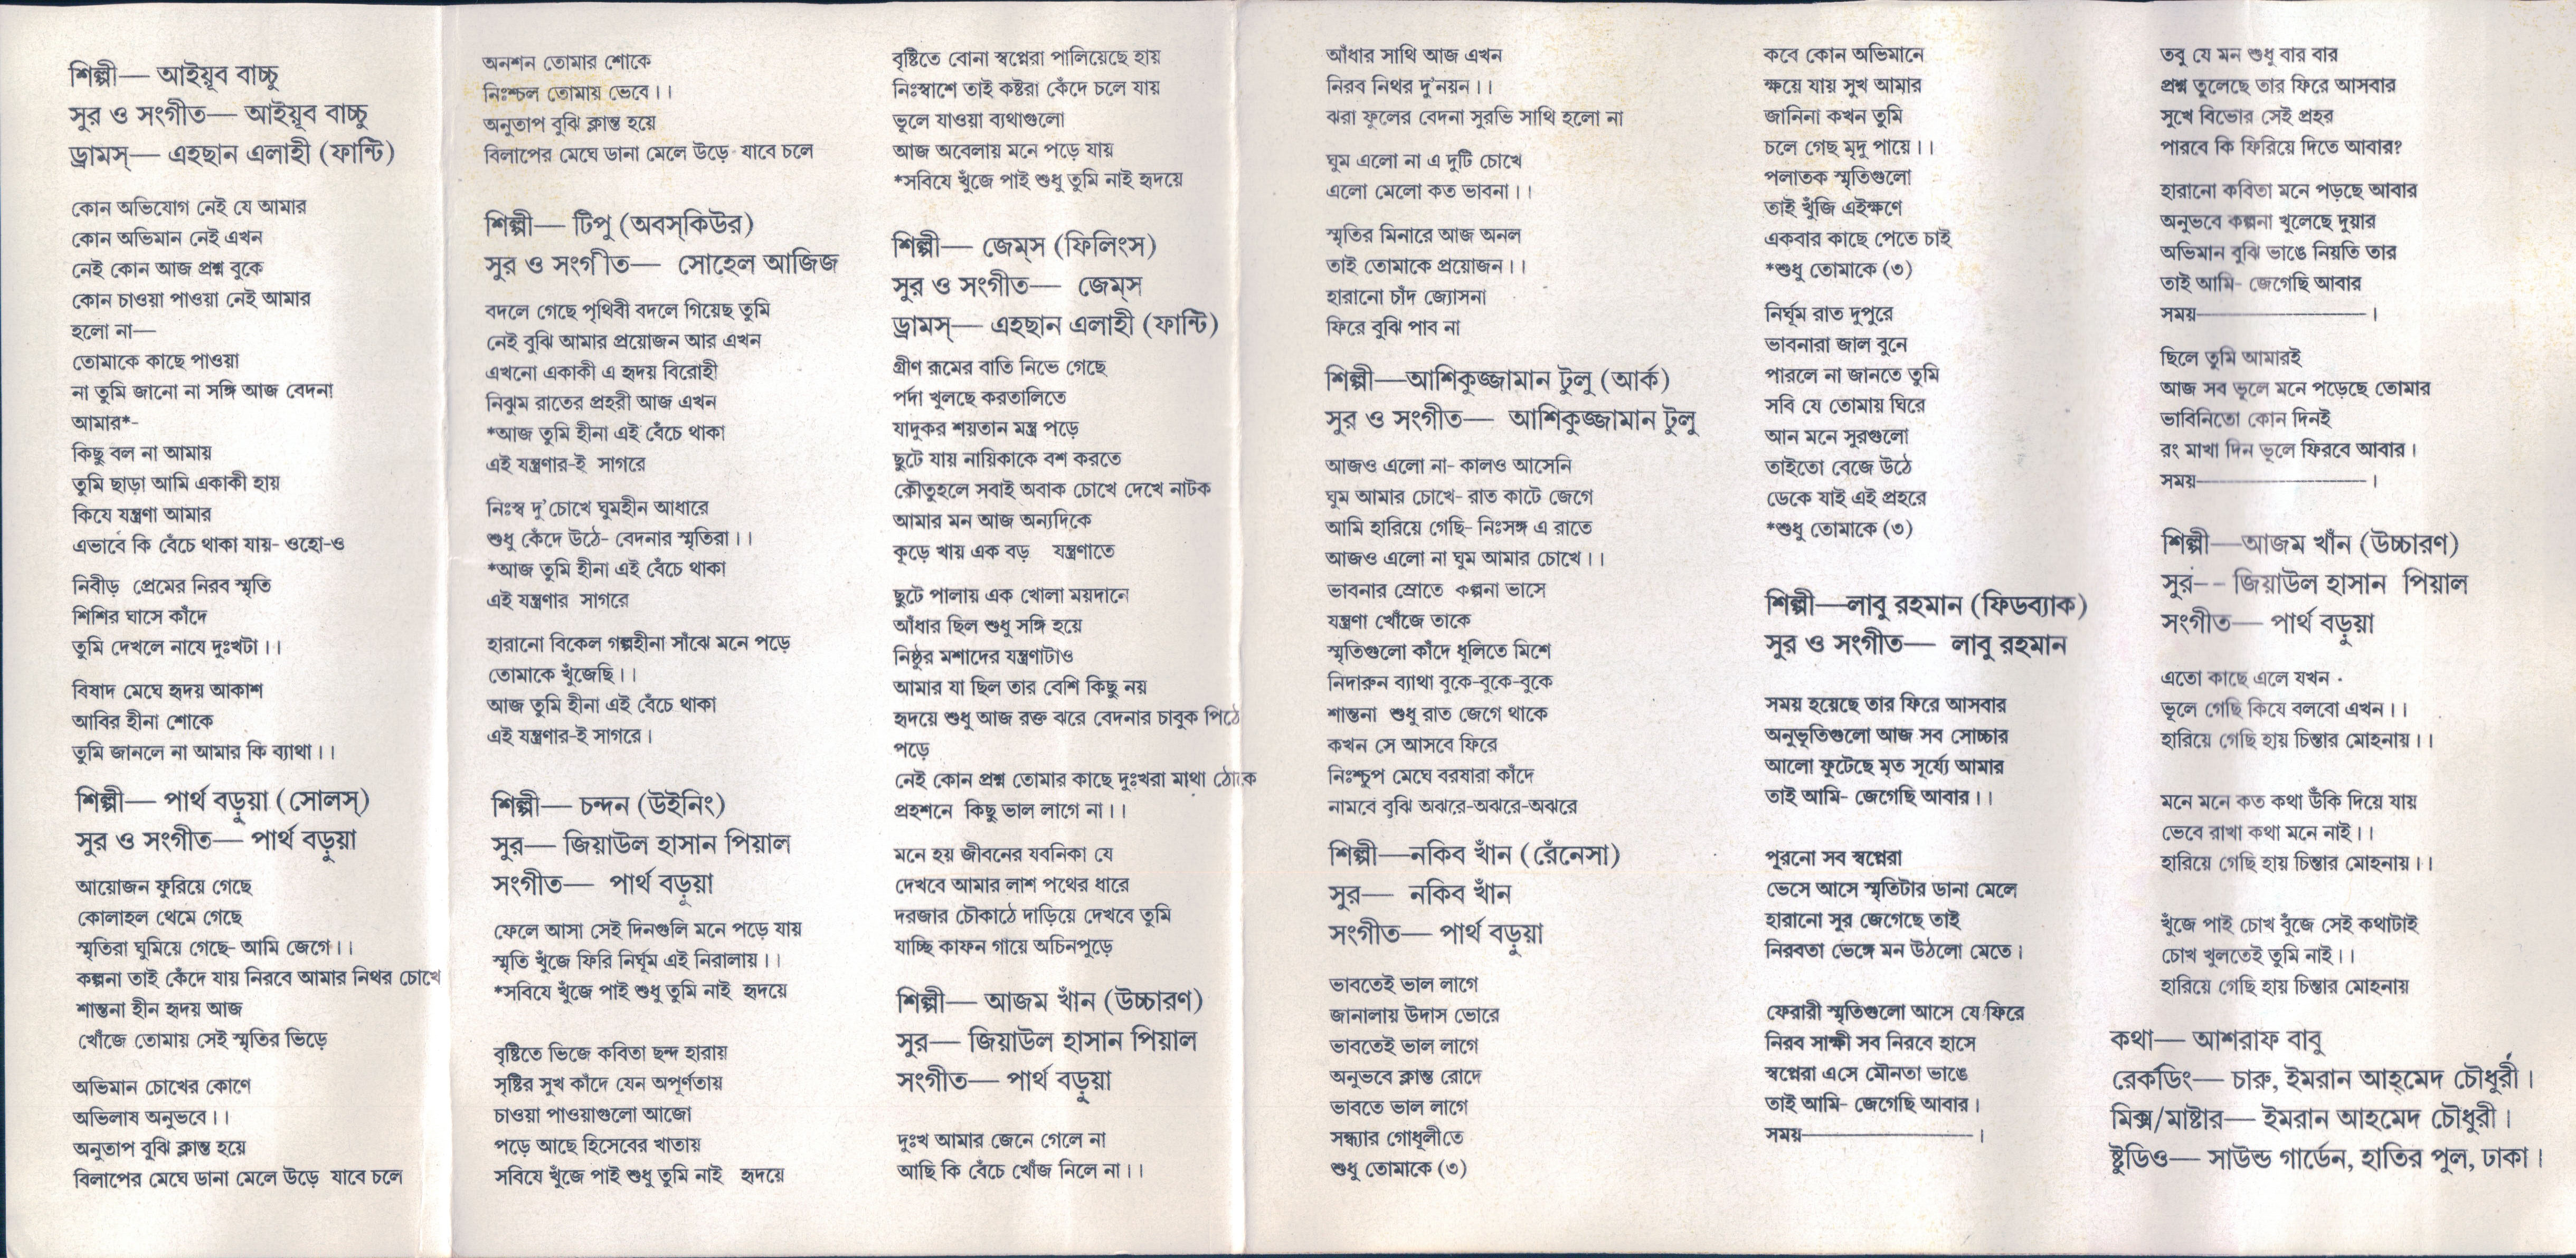 শিল্পী— আইয়ূব বাচ্চু
সুর ও সংগীত— আইয়ূব বাচ্চু
ড্রামস্— এহছান এলাহী (ফান্টি)
কোন অভিযোগ নেই যে আমার
কোন অভিমান নেই এখন
নেই কোন আজ প্রশ্ন বুকে
কোন চাওয়া পাওয়া নেই আমার
হলো না—
তোমাকে কাছে পাওয়া
না তুমি জানো না সঙ্গি আজ বেদনা
আমার*-
কিছু বল না আমায়
তুমি ছাড়া আমি একাকী হায়
কিযে যন্ত্রণা আমার
এভাবে কি বেঁচে থাকা যায়- ওহো-ও
নিবীড় প্রেমের নিরব স্মৃতি
শিশির ঘাসে কাঁদে
তুমি দেখলে নাযে দুঃখটা।।
বিষাদ মেঘে হৃদয় আকাশ
আবির হীনা শোকে
তুমি জানলে না আমার কি ব্যাথা।।
শিল্পী— পার্থ বড়ুয়া (সোলস্)
সুর ও সংগীত— পার্থ বড়ুয়া
আয়োজন ফুরিয়ে গেছে
কোলাহল থেমে গেছে
স্মৃতিরা ঘুমিয়ে গেছে- আমি জেগে।।
কল্পনা তাই কেঁদে যায় নিরবে আমার নিথর চোখে
শান্তনা হীন হৃদয় আজ
খোঁজে তোমায় সেই স্মৃতির ভিড়ে
অভিমান চোখের কোণে
অভিলাষ অনুভবে।।
অনুতাপ বুঝি ক্লান্ত হয়ে
বিলাপের মেঘে ডানা মেলে উড়ে যাবে চলে
অনশন তোমার শোকে
নিঃশ্চল তোমায় ভেবে।।
অনুতাপ বুঝি ক্লান্ত হয়ে
বিলাপের মেঘে ডানা মেলে উড়ে যাবে চলে
শিল্পী— টিপু (অবস্কিউর)
সুর ও সংগীত— সোহেল আজিজ
বদলে গেছে পৃথিবী বদলে গিয়েছ তুমি
নেই বুঝি আমার প্রয়োজন আর এখন
এখনো একাকী এ হৃদয় বিরোহী
নিঝুম রাতের প্রহরী আজ এখন
*আজ তুমি হীনা এই বেঁচে থাকা
এই যন্ত্রণার-ই সাগরে
নিঃস্ব দু'চোখে ঘুমহীন আধারে
শুধু কেঁদে উঠে- বেদনার স্মৃতিরা।।
*আজ তুমি হীনা এই বেঁচে থাকা
এই যন্ত্রণার সাগরে
হারানো বিকেল গল্পহীনা সাঁঝে মনে পড়ে
তোমাকে খুঁজেছি।।
আজ তুমি হীনা এই বেঁচে থাকা
এই যন্ত্রণার-ই সাগরে।
শিল্পী— চন্দন (উইনিং)
সুর— জিয়াউল হাসান পিয়াল
সংগীত— পার্থ বড়ুয়া
ফেলে আসা সেই দিনগুলি মনে পড়ে যায়
স্মৃতি খুঁজে ফিরি নির্ঘূম এই নিরালায়।।
*সবিযে খুঁজে পাই শুধু তুমি নাই হৃদয়ে
বৃষ্টিতে ভিজে কবিতা ছন্দ হারায়
সৃষ্টির সুখ কাঁদে যেন অপূর্ণতায়
চাওয়া পাওয়াগুলো আজো
পড়ে আছে হিসেবের খাতায়
সবিযে খুঁজে পাই শুধু তুমি নাই হৃদয়ে
বৃষ্টিতে বোনা স্বপ্নেরা পালিয়েছে হায়
নিঃস্বাশে তাই কষ্টরা কেঁদে চলে যায়
ভূলে যাওয়া ব্যথাগুলো
আজ অবেলায় মনে পড়ে যায়
*সবিযে খুঁজে পাই শুধু তুমি নাই হৃদয়ে
শিল্পী— জেম্স (ফিলিংস)
সুর ও সংগীত— জেম্স
ড্রামস্— এহছান এলাহী (ফান্টি)
গ্রীণ রূমের বাতি নিভে গেছে
পর্দা খুলছে করতালিতে
যাদুকর শয়তান মন্ত্র পড়ে
ছুটে যায় নায়িকাকে বশ করতে
কৌতুহলে সবাই অবাক চোখে দেখে নাটক
আমার মন আজ অন্যদিকে
কূড়ে খায় এক বড় যন্ত্রণাতে
ছুটে পালায় এক খোলা ময়দানে
আঁধার ছিল শুধু সঙ্গি হয়ে
নিষ্ঠুর মশাদের যন্ত্রণাটাও
আমার যা ছিল তার বেশি কিছু নয়
হৃদয়ে শুধু আজ রক্ত ঝরে বেদনার চাবুক পিঠে
পড়ে
নেই কোন প্রশ্ন তোমার কাছে দুঃখরা মাথা ঠোকে
প্রহশনে কিছু ভাল লাগে না।।
মনে হয় জীবনের যবনিকা যে
দেখবে আমার লাশ পথের ধারে
দরজার চৌকাঠে দাড়িয়ে দেখবে তুমি
যাচ্ছি কাফন গায়ে অচিনপুড়ে
শিল্পী— আজম খাঁন (উচ্চারণ)
সুর— জিয়াউল হাসান পিয়াল
সংগীত— পার্থ বড়ুয়া
দুঃখ আমার জেনে গেলে না
আছি কি বেঁচে খোঁজ নিলে না।।
আঁধার সাথি আজ এখন
নিরব নিথর দু'নয়ন।।
ঝরা ফুলের বেদনা সুরভি সাথি হলো না
ঘুম এলো না এ দুটি চোখে
এলো মেলো কত ভাবনা।।
স্মৃতির মিনারে আজ অনল
তাই তোমাকে প্রয়োজন।।
হারানো চাঁদ জ্যোসনা
ফিরে বুঝি পাব না
শিল্পী—আশিকুজ্জামান টুলু (আর্ক)
সুর ও সংগীত— আশিকুজ্জামান টুলু
আজও এলো না- কালও আসেনি
ঘুম আমার চোখে- রাত কাটে জেগে
আমি হারিয়ে গেছি- নিঃসঙ্গ এ রাতে
আজও এলো না ঘুম আমার চোখে।।
ভাবনার স্রোতে কল্পনা ভাসে
যন্ত্রণা খোঁজে তাকে
স্মৃতিগুলো কাঁদে ধূলিতে মিশে
নিদারুন ব্যাথা বুকে-বুকে-বুকে
শান্তনা শুধু রাত জেগে থাকে
কখন সে আসবে ফিরে
নিঃশ্চুপ মেঘে বরষারা কাঁদে
নামবে বুঝি অঝরে-অঝরে-অঝরে
শিল্পী—নকিব খাঁন (রেঁনেসা)
সুর— নকিব খাঁন
সংগীত— পার্থ বড়ুয়া
ভাবতেই ভাল লাগে
জানালায় উদাস ভোরে
ভাবতেই ভাল লাগে
অনুভবে ক্লান্ত রোদে
ভাবতে ভাল লাগে
সন্ধ্যার গোধূলীতে
শুধু তোমাকে (৩)
কবে কোন অভিমানে
ক্ষয়ে যায় সুখ আমার
জানিনা কখন তুমি
চলে গেছ মৃদু পায়ে।।
পলাতক স্মৃতিগুলো
তাই খুঁজি এইক্ষণে
একবার কাছে পেতে চাই
*শুধু তোমাকে (৩)
নির্ঘূম রাত দুপুরে
ভাবনারা জাল বুনে
পারলে না জানতে তুমি
সবি যে তোমায় ঘিরে
আন মনে সুরগুলো
তাইতো বেজে উঠে
ডেকে যাই এই প্রহরে
*শুধু তোমাকে (৩)
শিল্পী—লাবু রহমান (ফিডব্যাক)
সুর ও সংগীত— লাবু রহমান
সময় হয়েছে তার ফিরে আসবার
অনুভূতিগুলো আজ সব সোচ্চার
আলো ফুটেছে মৃত সূর্য্যে আমার
তাই আমি- জেগেছি আবার।।
পূরনো সব স্বপ্নেরা
ভেসে আসে স্মৃতিটার ডানা মেলে
হারানো সুর জেগেছে তাই
নিরবতা ভেঙ্গে মন উঠলো মেতে।
ফেরারী স্মৃতিগুলো আসে যে ফিরে
নিরব সাক্ষী সব নিরবে হাসে
স্বপ্নেরা এসে মৌনতা ভাঙে
তাই আমি- জেগেছি আবার।
সময়——————।
তবু যে মন শুধু বার বার
প্রশ্ন তুলেছে তার ফিরে আসবার
সুখে বিভোর সেই প্রহর
পারবে কি ফিরিয়ে দিতে আবার?
হারানো কবিতা মনে পড়ছে আবার
অনুভবে কল্পনা খুলেছে দুয়ার
অভিমান বুঝি ভাঙে নিয়তি তার
তাই আমি- জেগেছি আবার
সময়——————।
ছিলে তুমি আমারই
আজ সব ভূলে মনে পড়েছে তোমার
ভাবিনিতো কোন দিনই
রং মাখা দিন ভূলে ফিরবে আবার।
সময়——————।
শিল্পী—আজম খাঁন (উচ্চারণ)
সুর-- জিয়াউল হাসান পিয়াল
সংগীত— পার্থ বড়ুয়া
এতো কাছে এলে যখন
ভূলে গেছি কিযে বলবো এখন।।
হারিয়ে গেছি হায় চিন্তার মোহনায়।।
মনে মনে কত কথা উঁকি দিয়ে যায়
ভেবে রাখা কথা মনে নাই।।
হারিয়ে গেছি হায় চিন্তার মোহনায়।।
খুঁজে পাই চোখ বুঁজে সেই কথাটাই
চোখ খুলতেই তুমি নাই।।
হারিয়ে গেছি হায় চিন্তার মোহনায়
কথা— আশরাফ বাবু
রেকর্ডিং— চারু, ইমরান আহ্মেদ চৌধুরী।
মিক্স/মাষ্টার— ইমরান আহমেদ চৌধুরী।
ষ্টুডিও— সাউন্ড গার্ডেন, হাতির পুল, ঢাকা।